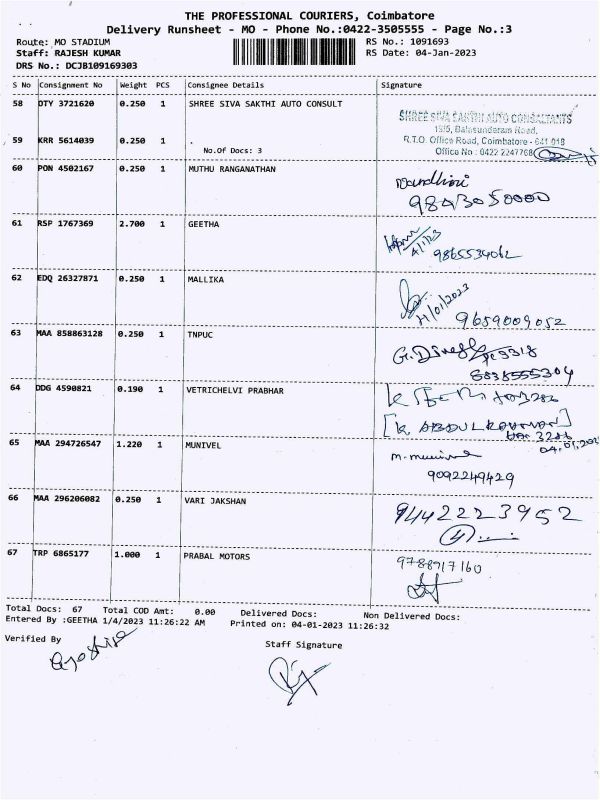 THE PROFESSIONAL COURIERS, Coimbatore
Delivery Runsheet - MO - Phone No.:0422-3505555 - Page No.:3
Route: MO STADIUM
RS No.: 1091693
Staff: RAJESH KUMAR
RS Date: 04-Jan-2023
DRS No.: DCJB109169303
S No Consignment No Weight PCS Consignee Details Signature
58 DTY 3721620 0.250 1 SHREE SIVA SAKTHI AUTO CONSULT
SHREE SIVA SAKTHI AUTO CONSULTANTS
15/5, Balasundaram Road,
59 KRR 5614039 0.250 1
R.T.O. Office Road, Coimbatore - 641 018
No.Of Docs: 3
Office No : 0422 2247768
60 PON 4502167 0.250 1 MUTHU RANGANATHAN
Nandhini
9843050000
61 RSP 1767369 2.700 1 GEETHA
4/1/23
9865534062
62 EDQ 26327871 0.250 1 MALLIKA
4/01/2023
9659009052
63 MAA 858863128 0.250 1 TNPUC
G.Dinesh
64 DDG 4590821 0.190 1 VETRICHELVI PRABHAR
[K ABDUL
3286
04.01.202
65 MAA 294726547 1.220 1 MUNIVEL
m. munivel
9092249429
66 MAA 296206082 0.250 1 VARI JAKSHAN
9442223952
67 TRP 6865177 1.000 1 PRABAL MOTORS
9788917160
Total Docs: 67 Total COD Amt: 0.00 Delivered Docs: Non Delivered Docs:
Entered By :GEETHA 1/4/2023 11:26:22 AM Printed on: 04-01-2023 11:26:32
Verified By
Staff Signature